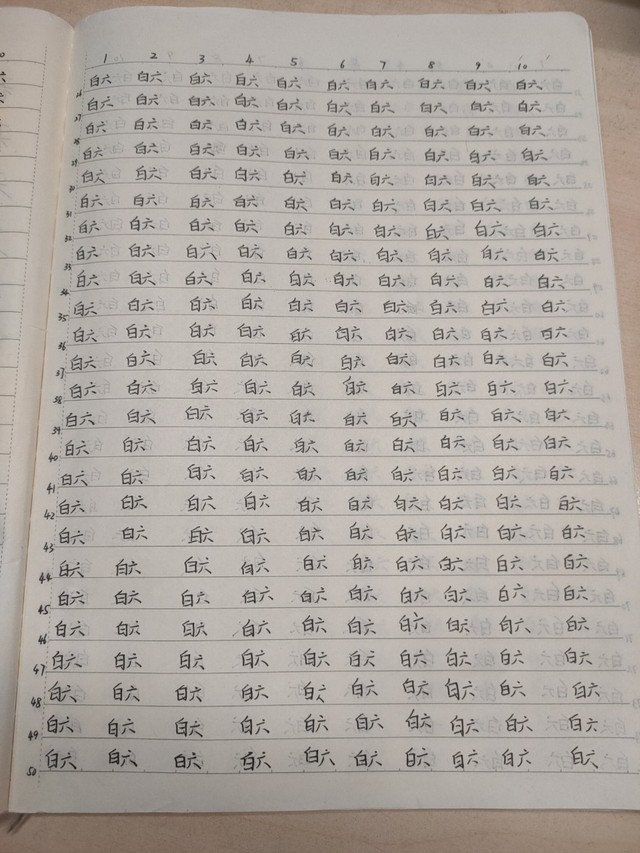 1 2 3 4 5 6 7 8 9 10
26 白六 白六 白六 白六 白六 白六 白六 白六 白六 白六
27 白六 白六 白六 白六 白六 白六 白六 白六 白六 白六
28 白六 白六 白六 白六 白六 白六 白六 白六 白六 白六
29 白六 白六 白六 白六 白六 白六 白六 白六 白六 白六
30 白六 白六 白六 白六 白六 白六 白六 白六 白六 白六
31 白六 白六 白六 白六 白六 白六 白六 白六 白六 白六
32 白六 白六 白六 白六 白六 白六 白六 白六 白六 白六
33 白六 白六 白六 白六 白六 白六 白六 白六 白六 白六
34 白六 白六 白六 白六 白六 白六 白六 白六 白六 白六
35 白六 白六 白六 白六 白六 白六 白六 白六 白六 白六
36 白六 白六 白六 白六 白六 白六 白六 白六 白六 白六
37 白六 白六 白六 白六 白六 白六 白六 白六 白六 白六
38 白六 白六 白六 白六 白六 白六 白六 白六 白六 白六
39 白六 白六 白六 白六 白六 白六 白六 白六 白六 白六
40 白六 白六 白六 白六 白六 白六 白六 白六 白六 白六
41 白六 白六 白六 白六 白六 白六 白六 白六 白六 白六
42 白六 白六 白六 白六 白六 白六 白六 白六 白六 白六
43 白六 白六 白六 白六 白六 白六 白六 白六 白六 白六
44 白六 白六 白六 白六 白六 白六 白六 白六 白六 白六
45 白六 白六 白六 白六 白六 白六 白六 白六 白六 白六
46 白六 白六 白六 白六 白六 白六 白六 白六 白六 白六
47 白六 白六 白六 白六 白六 白六 白六 白六 白六 白六
48 白六 白六 白六 白六 白六 白六 白六 白六 白六 白六
49 白六 白六 白六 白六 白六 白六 白六 白六 白六 白六
50 白六 白六 白六 白六 白六 白六 白六 白六 白六 白六